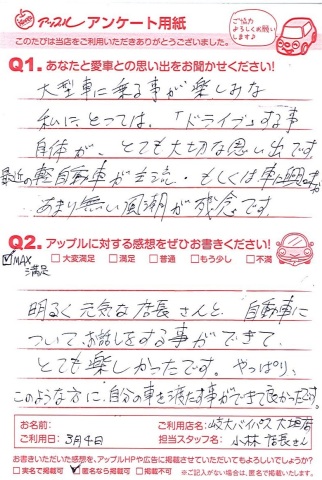 アップル アンケート用紙
ご協力
よろしくお願い
します♪
このたびは当店をご利用いただきありがとうございました。
Q1. あなたと愛車との思い出をお聞かせください!
大型車に乗る事が楽しみな
私にとっては、「ドライブ」する事
自体が、とても大切な思い出です。
最近の軽自動車が主流・もしくは車に興味が
あまり無い風潮が残念です。
Q2. アップルに対する感想をぜひお書きください!
☑MAX満足 □大変満足 □満足 □普通 □もう少し □不満
明るく元気な店長さんと、自動車に
ついてお話しをする事ができて、
とても楽しかったです。やっぱり、
このような方に、自分の車を渡たす事ができて良かったです。
お名前: ご利用店名: 岐大バイパス大垣店
ご利用日: 3月4日 担当スタッフ名: 小林店長さん
お書きいただいた感想を、アップルHPや広告に掲載させていただいてもよろしいでしょうか?
□実名で掲載可 ☑匿名なら掲載可 □掲載不可 ※ご記入がない場合は、匿名で掲載いたします。